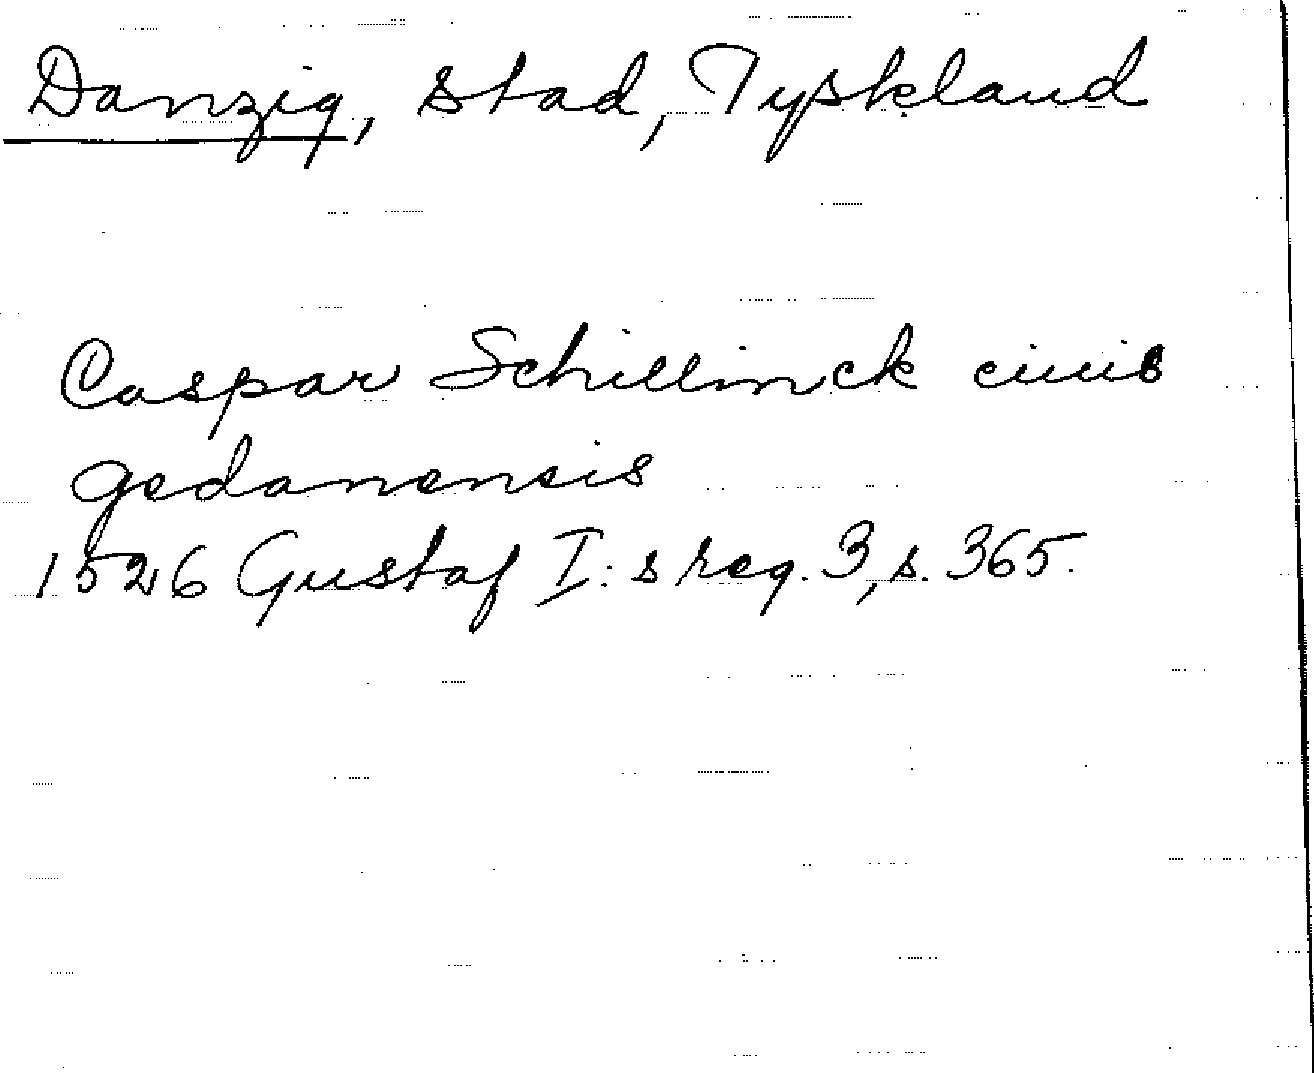 Danzig, stad, Tyskland
Caspar Schillinck ciuis
gedanensis
1526 Gustaf I:s reg. 3, s. 365.